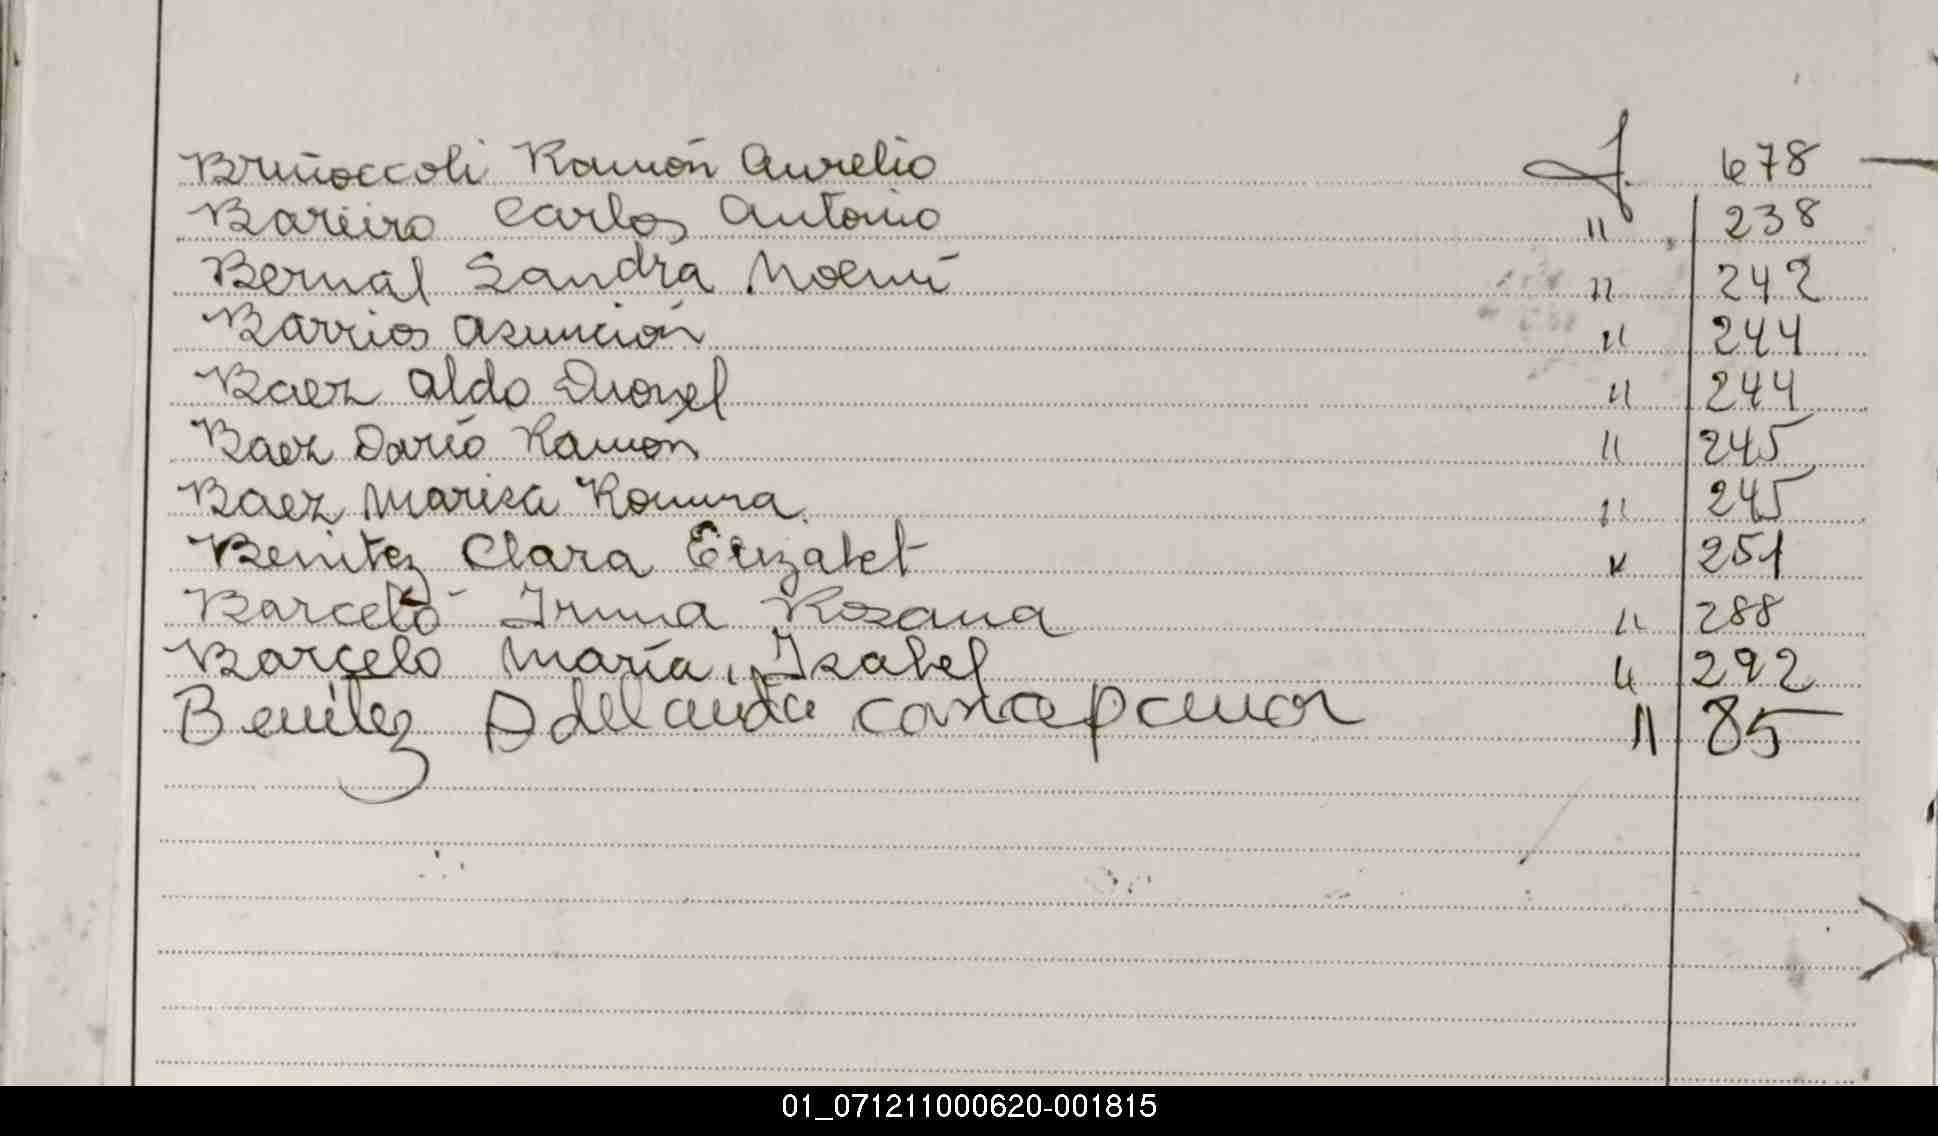 Bruñoccoli Ramón Aurelio f. 678
Bareiro Carlos Antonio " 238
Bernal Sandra Noemí " 242
Barrios Asunción " 244
Baez Aldo Dionel " 244
Baez Darío Ramón " 245
Baez Marisa Romina. " 245
Benitez Clara Elizabet " 251
Barceló Irma Rosana " 288
Barcelo María Isabel " 292
Benitez " 85
01_071211000620-001815